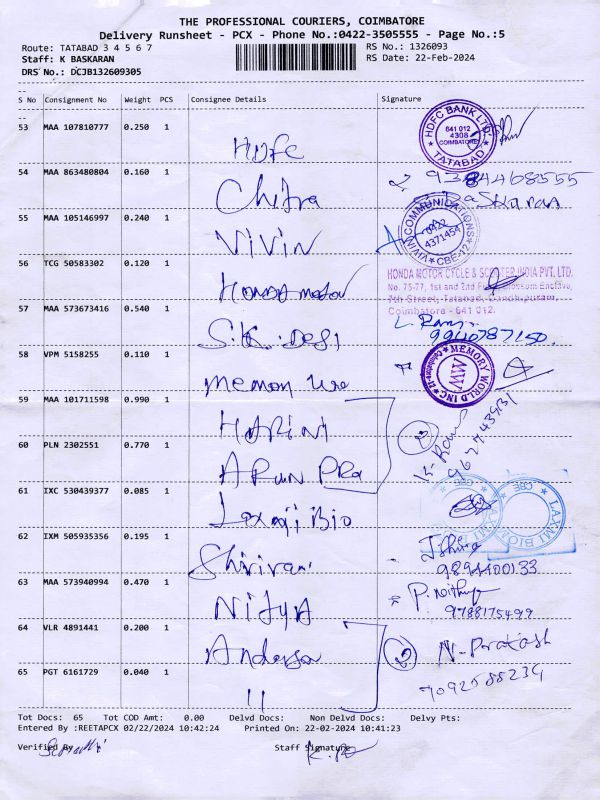 THE PROFESSIONAL COURIERS, COIMBATORE
Delivery Runsheet - PCX - Phone No.:0422-3505555 - Page No.:5
Route: TATABAD 3 4 5 6 7 RS No.: 1326093
Staff: K BASKARAN RS Date: 22-Feb-2024
DRS No.: DCJB132609305
S No Consignment No Weight PCS Consignee Details Signature
53 MAA 107810777 0.250 1 HDFC
HDFC BANK LTD. 641 012 4308 COIMBATORE * TATABAD *
54 MAA 863480804 0.160 1 Chitra
Baskaran
55 MAA 105146997 0.240 1 VIVIN
VIVIN COMMUNICATIONS 0422 4371454 * CBE-12 *
56 TCG 50583302 0.120 1 Honda motor
HONDA MOTOR CYCLE & SCOOTER INDIA PVT. LTD.
No. 75-77, 1st and 2nd Enclave,
7th Street, Tatabad, Gandhipuram,
Coimbatore - 641 012.
57 MAA 573673416 0.540 1 S.K. Desi
9940787150
58 VPM 5158255 0.110 1 Memory
* MEMORY WORLD INC * Coimbatore-12 MW
59 MAA 101711598 0.990 1 HARINI
60 PLN 2302551 0.770 1 ARUN PRA
2
61 IXC 530439377 0.085 1 Laxmi Bio
LAXMI BIO CBE
62 IXM 505935356 0.195 1
9894400133
63 MAA 573940994 0.470 1 NITYA
9788175499
64 VLR 4891441 0.200 1 Anderson
2 N-Prakash
65 PGT 6161729 0.040 1 11
Tot Docs: 65 Tot COD Amt: 0.00 Delvd Docs: Non Delvd Docs: Delvy Pts:
Entered By :REETAPCX 02/22/2024 10:42:24 Printed On: 22-02-2024 10:41:23
Verified By Staff Signature